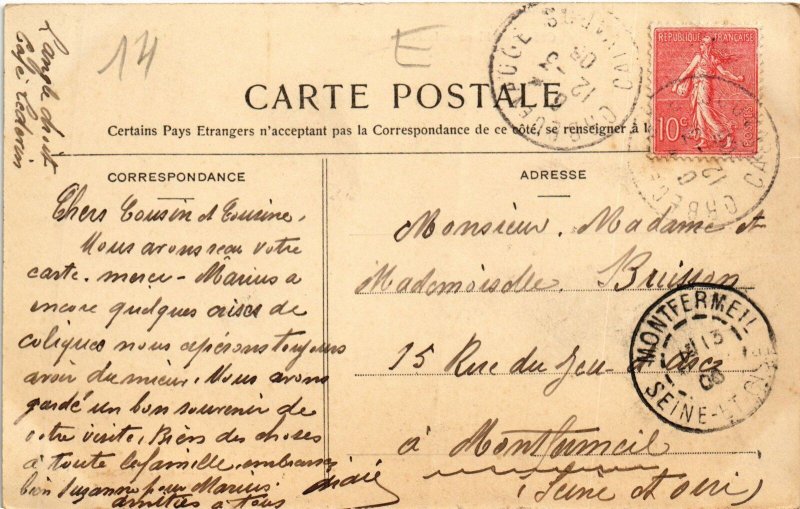 14
E
CARTE POSTALE
Certains Pays Etrangers n'acceptent pas la Correspondance de ce côté, se renseigner à l
REPUBLIQUE FRANÇAISE
10c
POSTES
CORRESPONDANCE
Chers Cousin et Cousine.
Nous avons reçu votre
carte. merci - Marius a
encore quelques crises de
coliques nous espérons toujours
avoir du mieux. Nous avons
gardé un bon souvenir de
votre visite. Bien des choses
à toute la famille. embrassez
bien Suzanne pour Marius
amitiés à tous
ADRESSE
Monsieur. Madame et
Mademoiselle. Buisson
15 Rue du Jeu
à Montfermeil
(Seine et Oise)
MONTFERMEIL
13
08
SEINE-ET-OISE
CALVADOS
12
08